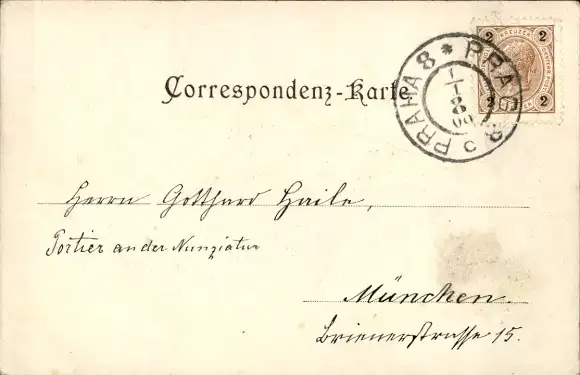 Correspondenz-Karte
PRAG 8 * PRAHA 8
1/1
00
c
2 2
2 2
KREUZER
Herrn Gotthard Haile,
Portier an der Nunziatur
München.
Brienerstrasse 15.